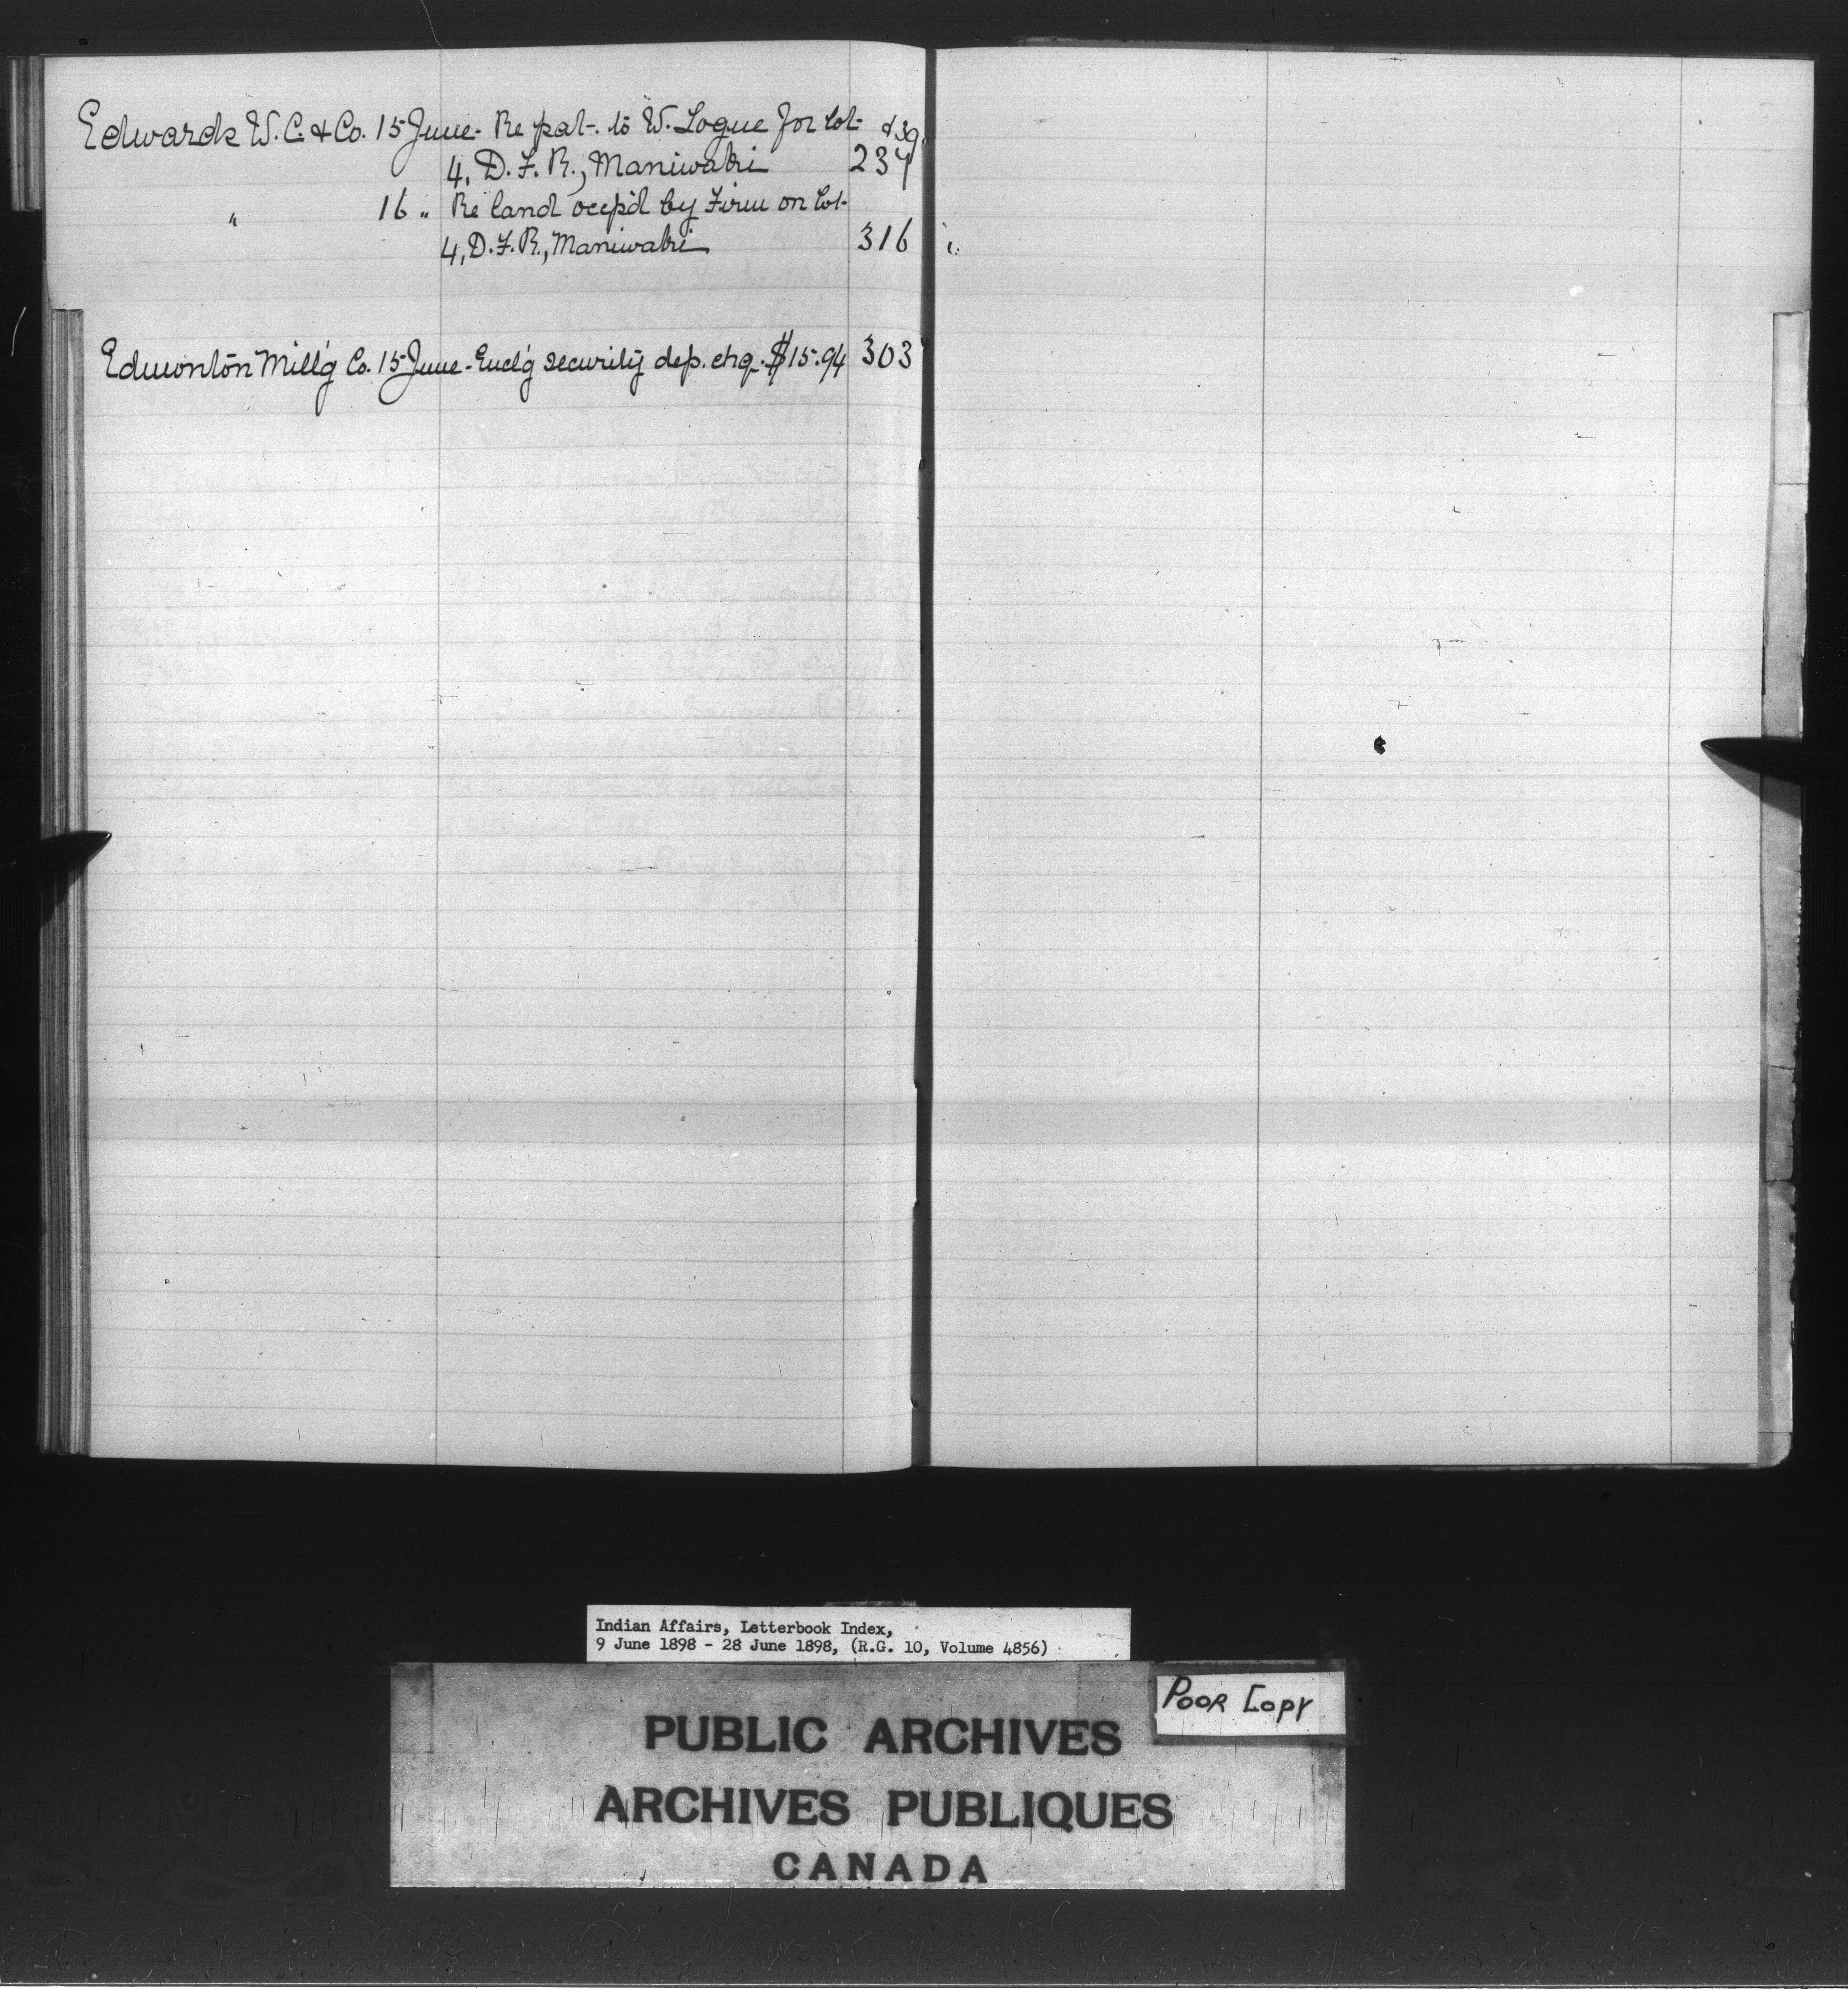 Edwards W. C. & Co. 15 June - Re pat. to W. Logue for lot & 39.
4, D. F. R., Maniwaki 237
" 16 " Re land occp'd by Firm on lot
4, D. F. R., Maniwaki 316
Edmonton Mill'g Co. 15 June - Encl'g security dep. chq. $15.94 303
Indian Affairs, Letterbook Index,
9 June 1898 - 28 June 1898, (R.G. 10, Volume 4856)
POOR COPY
PUBLIC ARCHIVES
ARCHIVES PUBLIQUES
CANADA